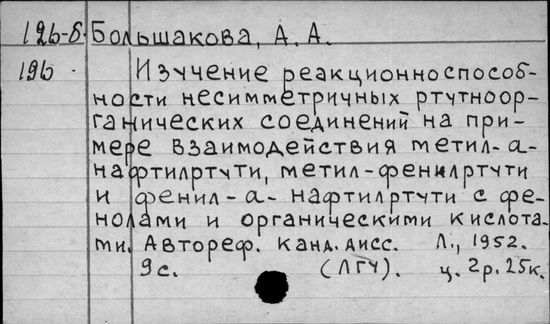 12б-б. Большакова, А. А.
19б. Изучение реакционноспособ-
ности несимметричных ртутноор-
ганических соединений на при-
мере взаимодействия метил-а-
нафтилртути, метил-фенилртути
и фенил-а-нафтилртути с фе-
нолами и органическими кислота-
ми. Автореф. канд. дисс. Л., 1952.
9с. (ЛГУ). ц. 2р. 25к.